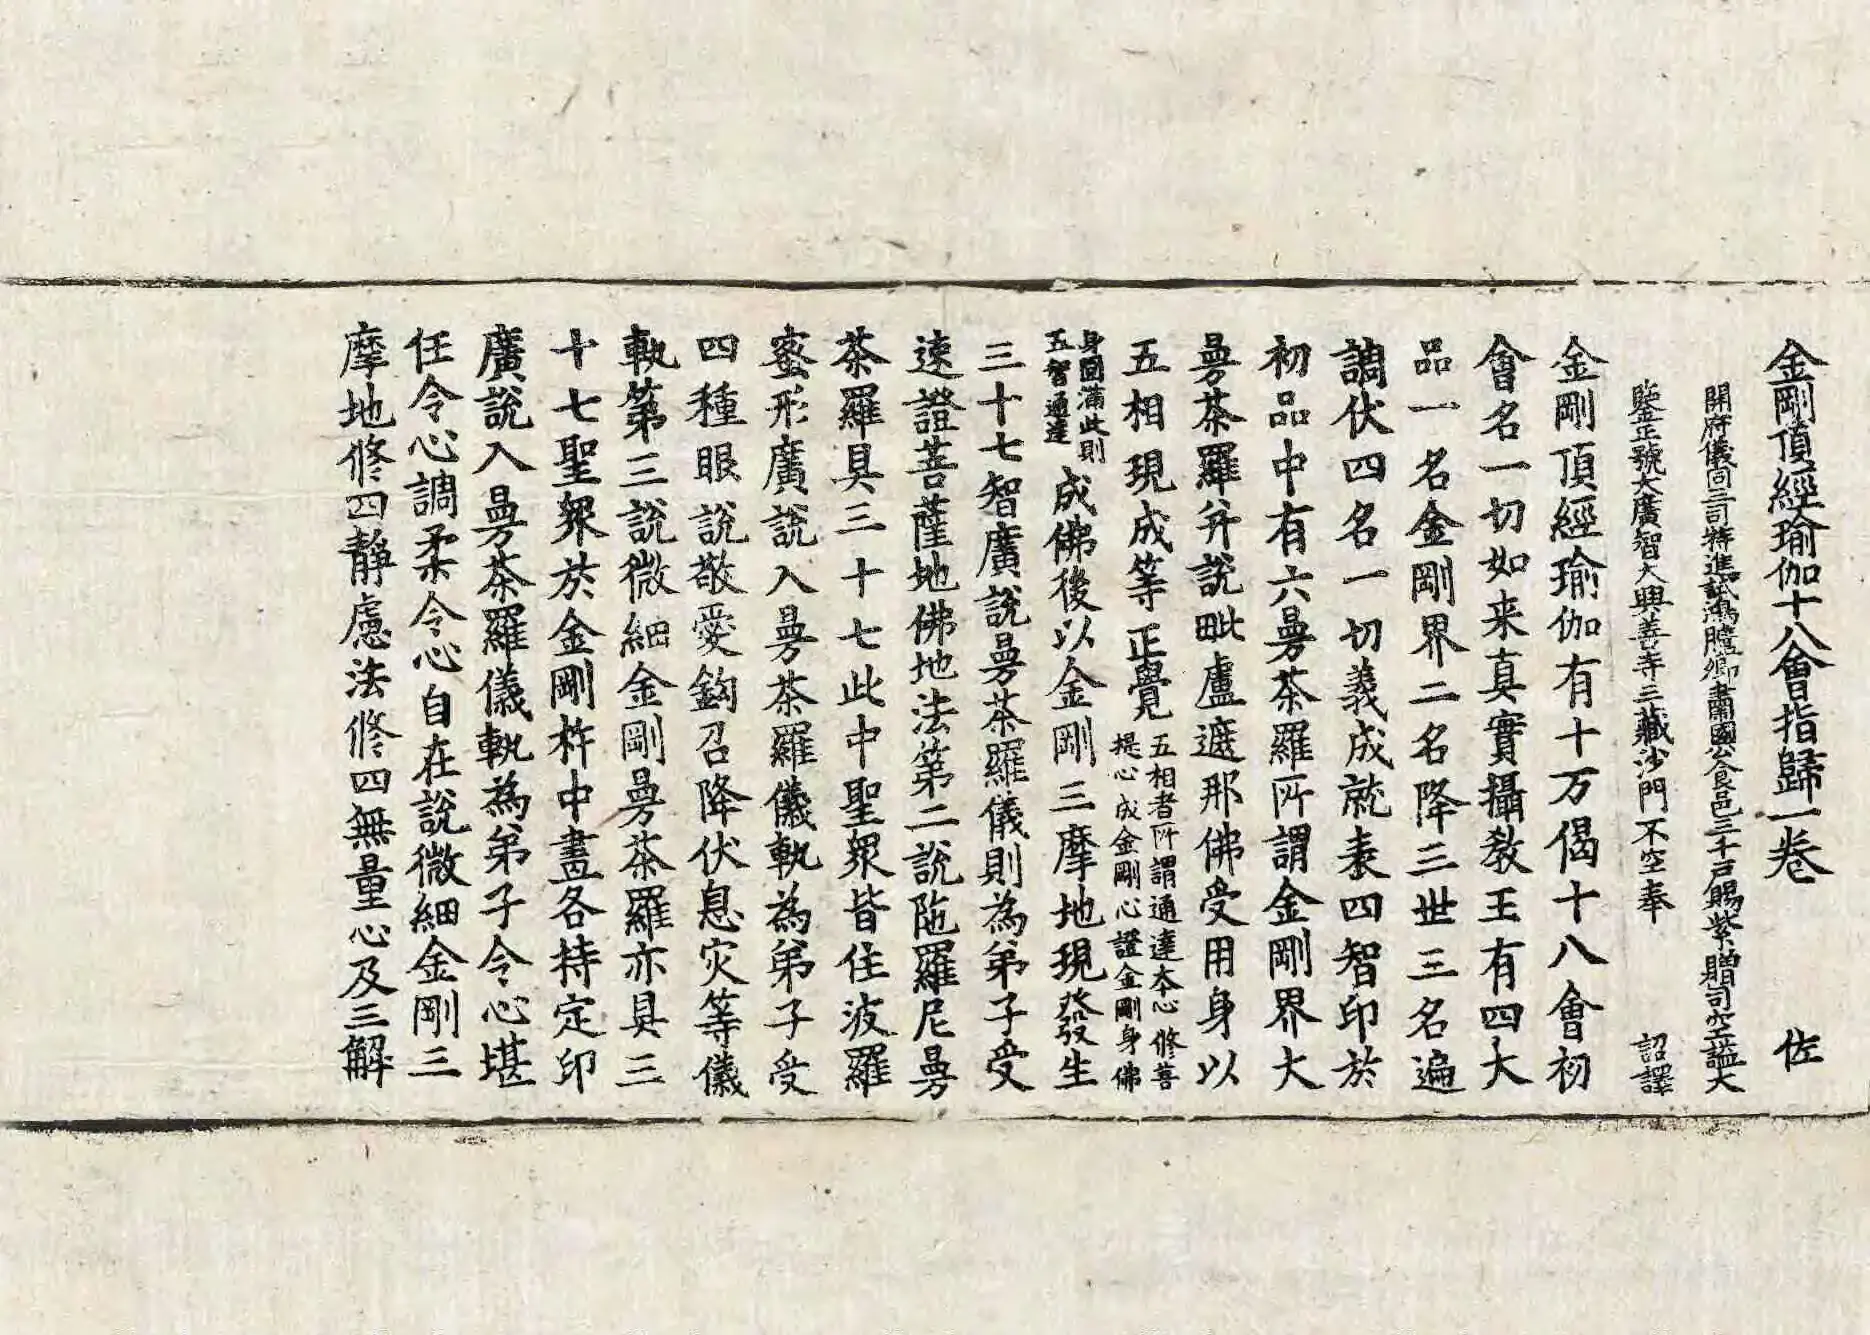 金剛頂經瑜伽十八會指歸一卷 佐
開府儀同三司特進試鴻臚卿肅國公食邑三千戸賜紫贈司空謚大
鑒正號大廣智大興善寺三藏沙門不空奉 詔譯
金剛頂經瑜伽有十万偈十八會初
會名一切如来真實攝教王有四大
品一名金剛界二名降三世三名遍
調伏四名一切義成就表四智印於
初品中有六曼茶羅所謂金剛界大
曼茶羅并說毗盧遮那佛受用身以
五相現成等正覺五相者所謂通達本心修菩提心成金剛心證金剛身佛
身圓滿此則五智通達成佛後以金剛三摩地現發生
三十七智廣說曼茶羅儀則為弟子受
速證菩薩地佛地法第二說陁羅尼曼
茶羅具三十七此中聖衆皆住波羅
蜜形廣說入曼茶羅儀軌為弟子受
四種眼說敬愛鉤召降伏息灾等儀
軌第三說微細金剛曼茶羅亦具三
十七聖衆於金剛杵中畫各持定印
廣說入曼茶羅儀軌為弟子令心堪
任令心調柔令心自在說微細金剛三
摩地修四靜慮法修四無量心及三解